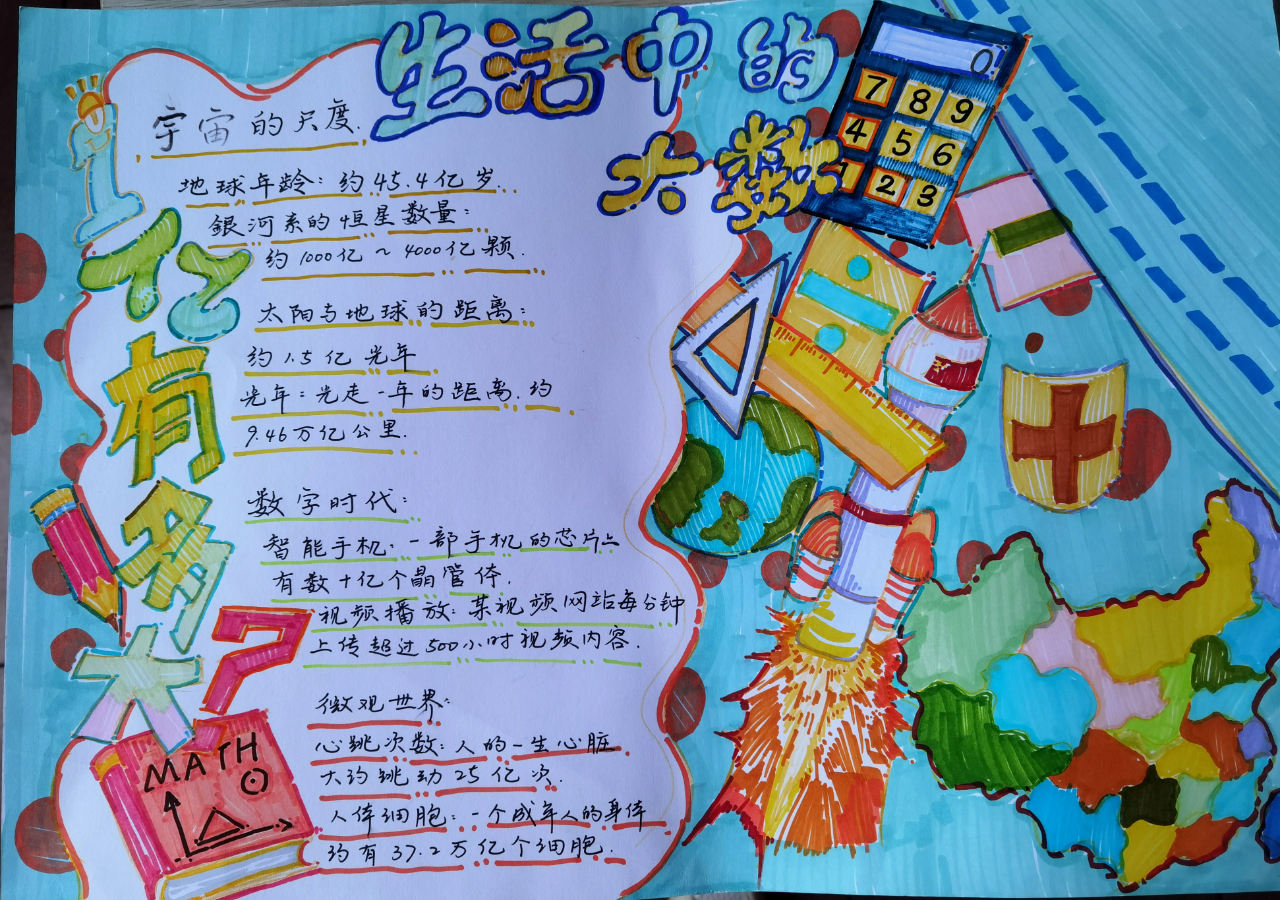 生活中的
大数
1亿有多大?
宇宙的尺度.
地球年龄：约45.4亿岁.
銀河系的恒星数量：
约1000亿~4000亿颗.
太阳与地球的距离：
约1.5亿光年
光年：光走一年的距离.约
9.46万亿公里.
数字时代：
智能手机：一部手机的芯片上
有数十亿个晶管体.
视频播放：某视频网站每分钟
上传超过500小时视频内容.
微观世界：
心跳次数：人的一生心脏
大约跳动25亿次.
人体细胞：一个成年人的身体
约有37.2万亿个细胞.
MATH
0
7 8 9
4 5 6
1 2 3